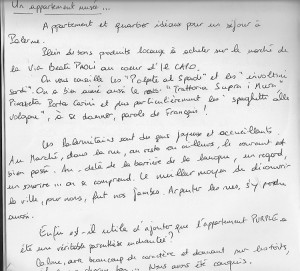 Un appartement musée...
Appartement et quartier idéaux pour un séjour à
Palerme.
Plein de bons produits locaux à acheter sur le marché de
la via Beati Paoli au coeur d'Il CAPO.
On vous conseille les "Polpette al Spada" et les "involtini
sarde". On a bien aimé aussi le resto "Trattoria Supra i Mura"
Piazzetta Porta Carini et plus particulièrement les "spaghetti alle
vongole", à se damner, parole de Français!
Les Palermitains sont des gens joyeux et accueillants
Au Marché, dans la rue, au resto ou ailleurs, le courant est
bien passé. Au-delà de la barrière de la langue, un regard,
un sourire on se comprend. Le meilleur moyen de découvrir
la ville, pour nous, fut nos jambes. Arpenter les rues, s'y perdre
aussi.
Enfin est-il utile d'ajouter que l'appartement PURPLE a
été une véritable parenthèse enchantée?
Calme, avec beaucoup de caractère et donnant sur les toits,
Nous avons été conquis.